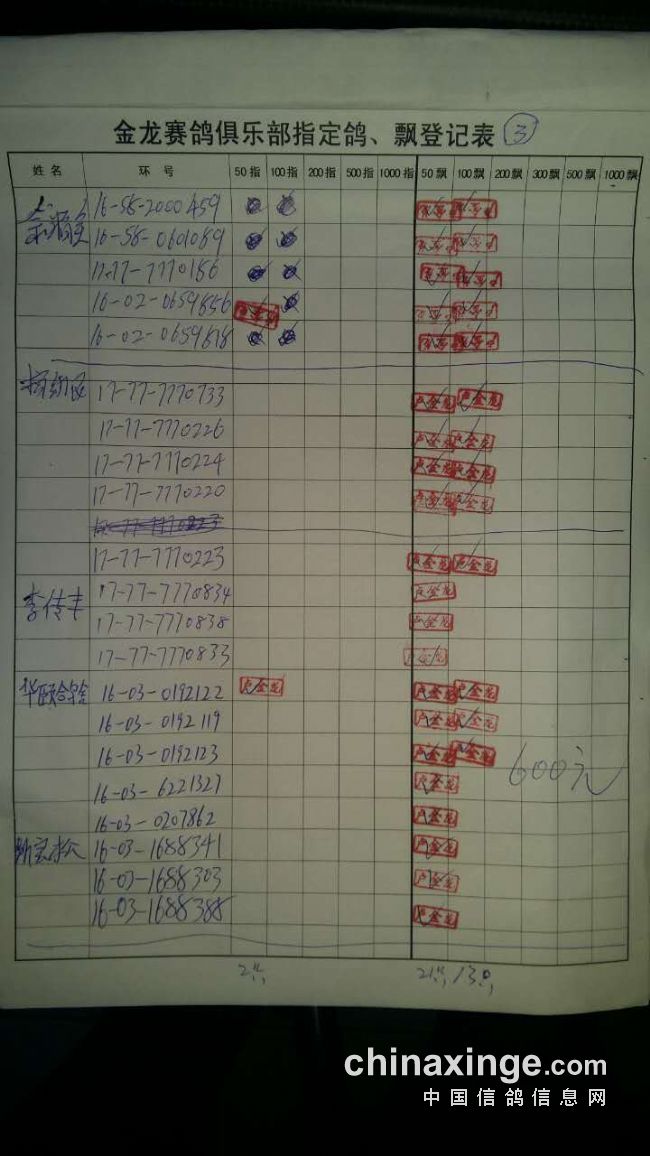 金龙赛鸽俱乐部指定鸽、飘登记表 ③
姓名 环号 50指 100指 200指 500指 1000指 50飘 100飘 200飘 300飘 500飘 1000飘
16-58-2000459
16-58-0601089
17-77-7770186
16-02-0659856
16-02-0659818
17-77-7770733 卢金龙 卢金龙
17-77-7770226 卢金龙 卢金龙
17-77-7770224 卢金龙 卢金龙
17-77-7770220 卢金龙 卢金龙
17-77-7770223 卢金龙 卢金龙
李传丰 17-77-7770834 卢金龙
17-77-7770838 卢金龙
17-77-7770833 卢金龙
16-03-0192122 卢金龙 卢金龙 卢金龙
16-03-0192119 卢金龙 卢金龙
16-03-0192123 卢金龙 卢金龙 600元
16-03-6221327 卢金龙
16-03-0207862 卢金龙
16-03-1688341 卢金龙
16-03-1688303 卢金龙
16-03-1688388 卢金龙
chinaxinge.com
中国信鸽信息网